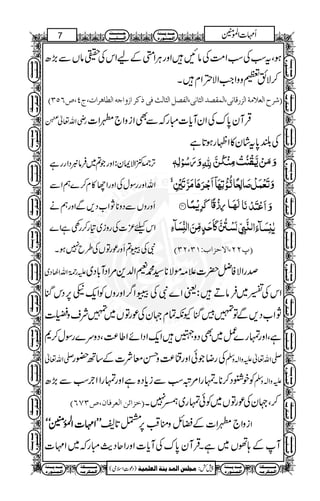 7
اُمہات المؤمنین
ہو، یہ سب کی سب امت کی مائیں ہیں اور ہر امتی کے لیے اس کی حقیقی ماں سے بڑھ
کر لائق تعظیم و واجب الاحترام ہیں۔
(شرح العلامۃ الزرقانی، المقصد الثانی، الفصل الثالث فی ذکر ازواجہ الطاہرات، ج٤، ص٣٥٦)
قرآن پاک کی ان آیات مبارکہ سے بھی ازواج مطہرات رضی اللہ تعالیٰ عنہن
کی بلندی پایہ شان کا اظہار ہوتا ہے
وَ مَنْ یَّقْنُتْ مِنْكُنَّ لِلّٰهِ وَ رَسُوْلِهٖ
وَ تَعْمَلْ صَالِحًا نُّؤْتِهَاۤ اَجْرَهَا مَرَّتَیْنِۙ
وَ اَعْتَدْنَا لَهَا رِزْقًا كَرِیْمًا
یٰنِسَآءَ النَّبِیِّ لَسْتُنَّ كَاَحَدٍ مِّنَ النِّسَآءِ
(پ٢٢، الاحزاب: ٣١، ٣٢)
ترجمۂ کنز الایمان: اور جو تم میں فرمانبردار رہے
اللہ اور رسول کی اور اچھا کام کرے ہم اسے
اوروں سے دونا ثواب دیں گے اور ہم نے
اس کیلئے عزت کی روزی تیار کر رکھی ہے اے
نبی کی بیبیو تم اور عورتوں کی طرح نہیں ہو۔
صدر الافاضل حضرت علامہ مولانا سید محمد نعیم الدین مراد آبادی علیہ رحمۃ اللہ الھادی
اس کی تفسیر میں فرماتے ہیں: یعنی اے نبی کی بیبیو! اگر اوروں کو ایک نیکی پر دس گنا
ثواب دیں گے تو تمہیں بیس گنا کیونکہ تمام جہان کی عورتوں میں تمہیں شرف و فضیلت
ہے، اور تمہارے عمل میں بھی دو جہتیں ہیں ایک ادائے اطاعت، دوسرے رسول کریم
صلی اللہ تعالیٰ علیہ والہ وسلم کی رضا جوئی اور قناعت و حسن معاشرت کے ساتھ حضور صلی اللہ تعالیٰ
علیہ والہ وسلم کو خوشنود کرنا۔ تمہارا مرتبہ سب سے زیادہ ہے اور تمہارا اجر سب سے بڑھ
کر، جہان کی عورتوں میں کوئی تمہاری ہمسر نہیں۔ (خزائن العرفان، ص ٦٧٣)
ازواج مطہرات کے فضائل و مناقب پر مشتمل تالیف ”امہات المؤمنین“
آپ کے ہاتھوں میں ہے۔ قرآن پاک کی آیات اور احادیث مبارکہ میں امہات
پیش کش: مجلس المدینۃ العلمیۃ (دعوت اسلامی)